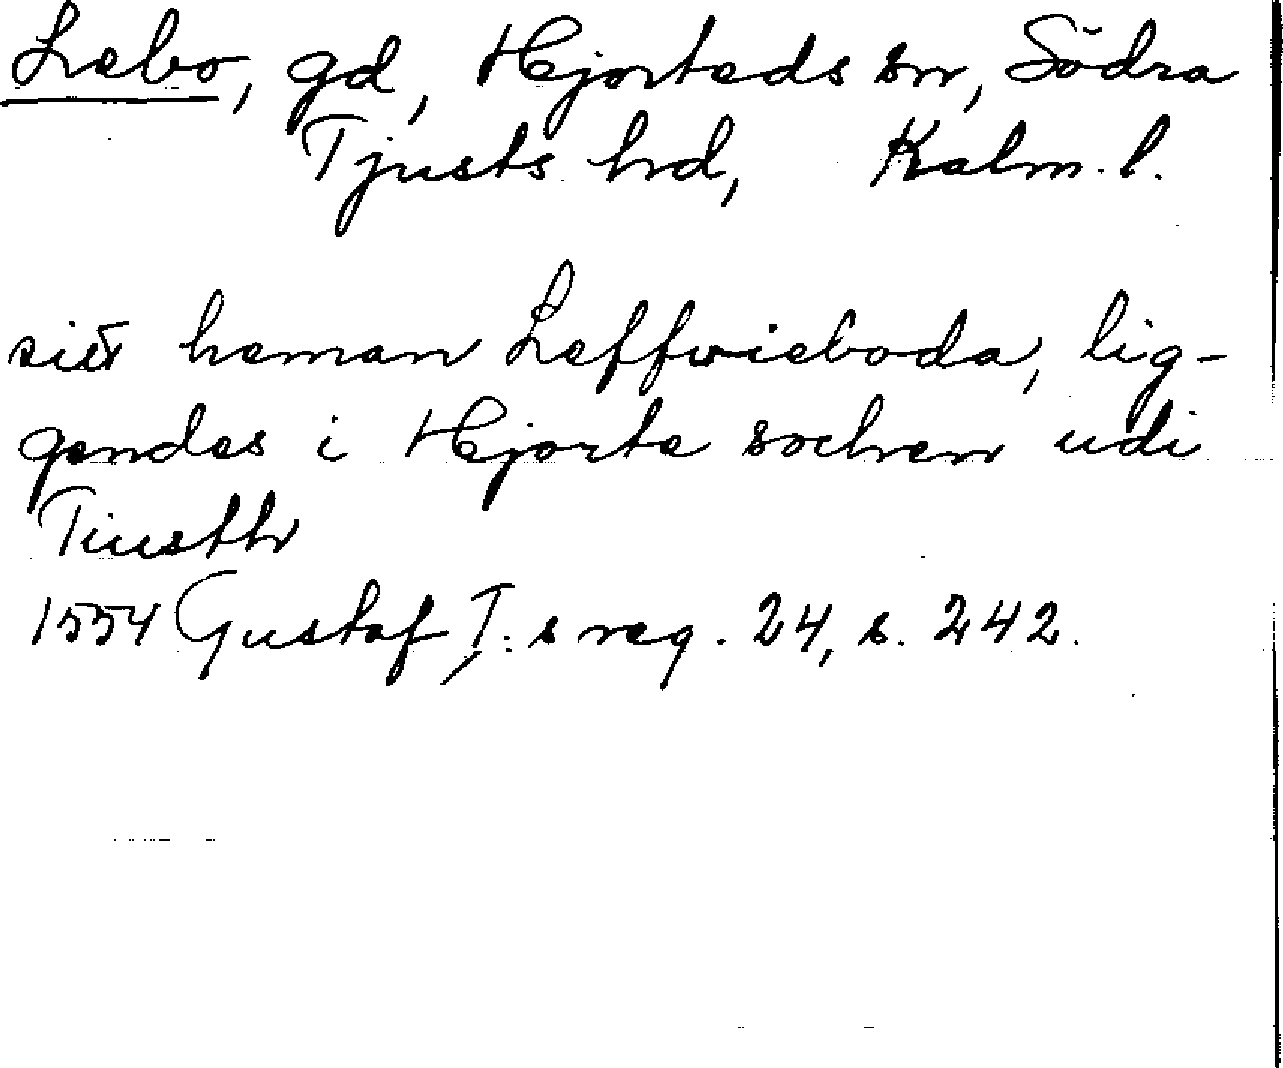 Lebo, gd, Hjorteds sn, Södra
Tjusts hd, Kalm. l.
sitt heman Leffvieboda, lig-
gendes i Hjorte sochen udi
Tiustth
1554 Gustaf I:s reg. 24, s. 242.